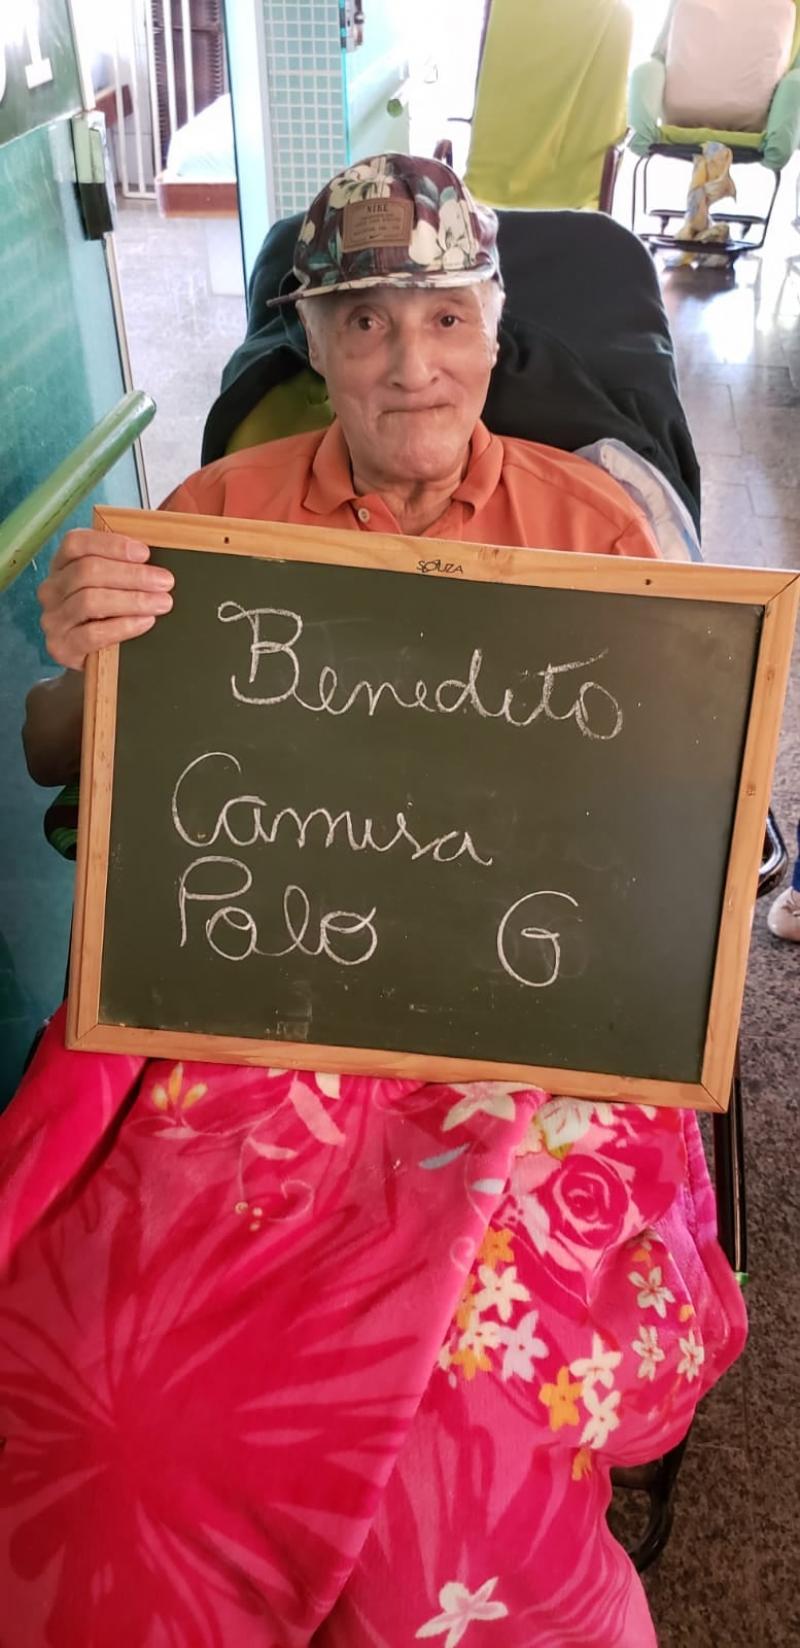 NIKE
SOUZA
Benedito
Camisa
Polo G